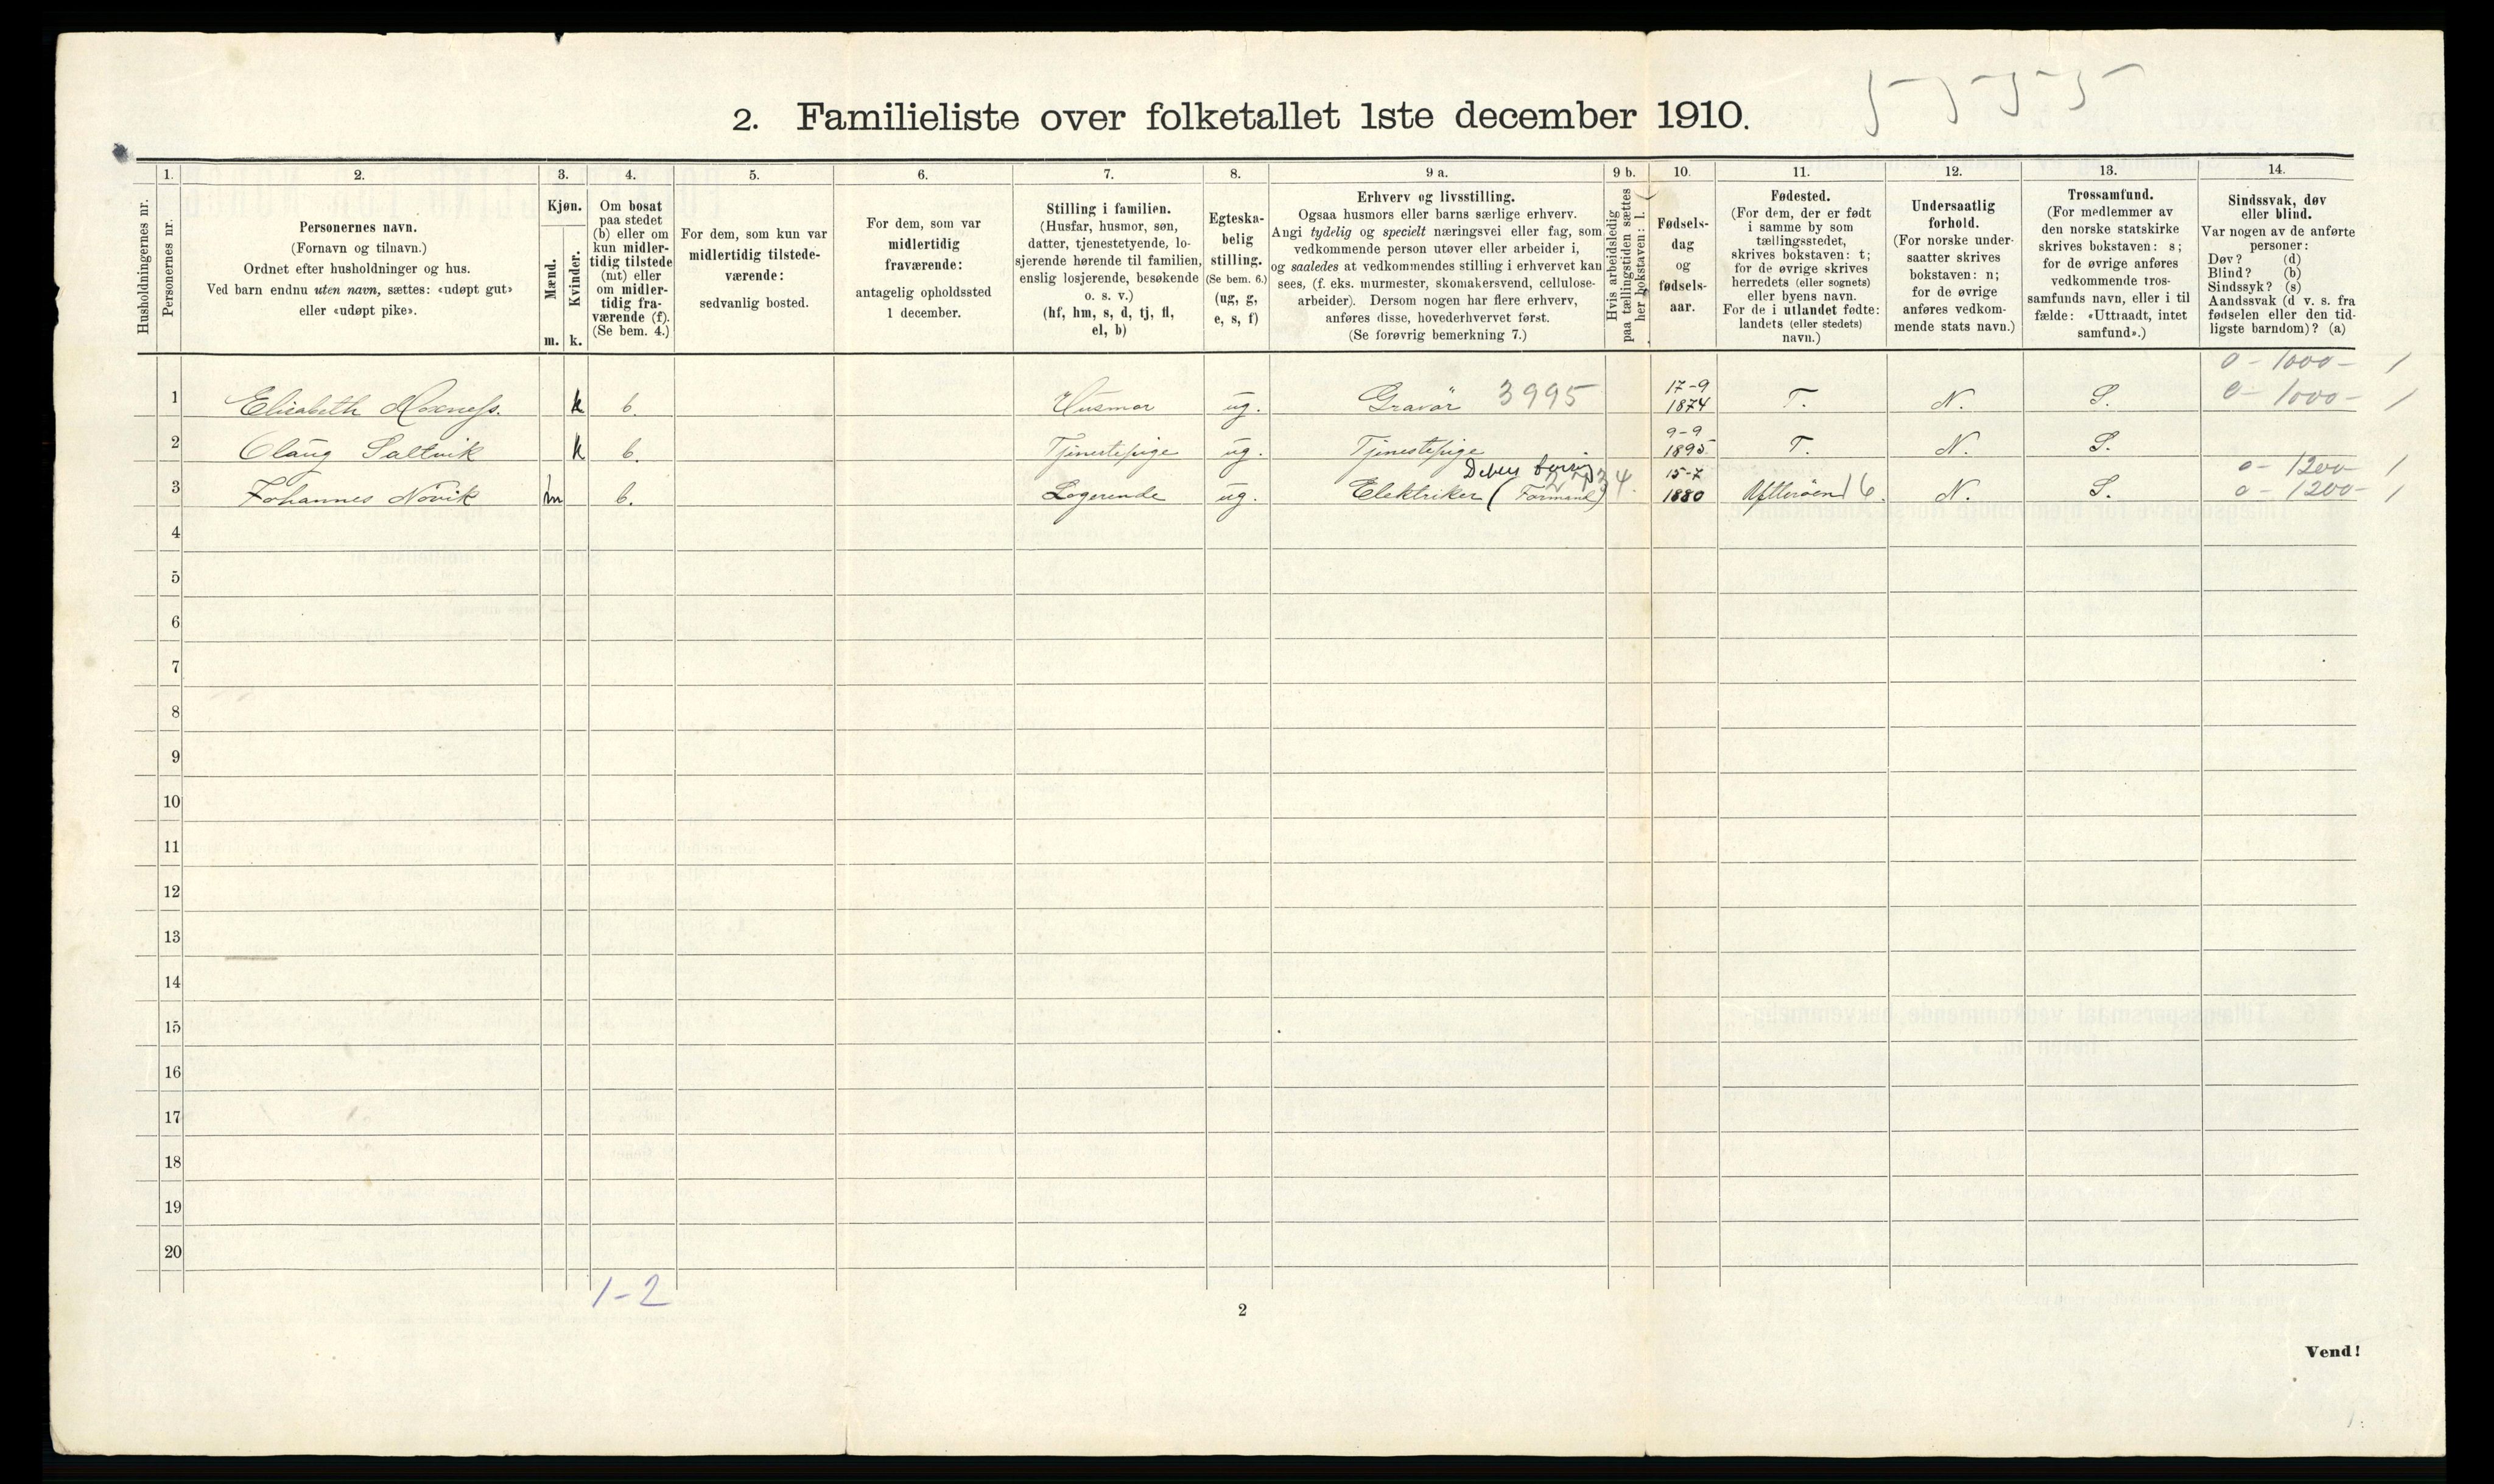 5-5-5-5
2. Familieliste over folketallet 1ste december 1910.
Husholdningernes nr.
1.
Personernes nr.
2.
Personernes navn.
(Fornavn og tilnavn.)
Ordnet efter husholdninger og hus.
Ved barn endnu uten navn, sættes: «udøpt gut»
eller «udøpt pike».
3.
Kjøn.
Mænd.
Kvinder.
m. k.
4.
Om bosat
paa stedet
(b) eller om
kun midler-
tidig tilstede
(mt) eller
om midler-
tidig fra-
værende (f).
(Se bem. 4.)
5.
For dem, som kun var
midlertidig tilstede-
værende:
sedvanlig bosted.
6.
For dem, som var
midlertidig
fraværende:
antagelig opholdssted
1 december.
7.
Stilling i familien.
(Husfar, husmor, søn,
datter, tjenestetyende, lo-
sjerende hørende til familien,
enslig losjerende, besøkende
o. s. v.)
(hf, hm, s, d, tj, fl,
el, b)
8.
Egteska-
belig
stilling.
(Se bem. 6.)
(ug, g,
e, s, f)
9 a.
Erhverv og livsstilling.
Ogsaa husmors eller barns særlige erhverv.
Angi tydelig og specielt næringsvei eller fag, som
vedkommende person utøver eller arbeider i,
og saaledes at vedkommendes stilling i erhvervet kan
sees, (f. eks. murmester, skomakersvend, cellulose-
arbeider). Dersom nogen har flere erhverv,
anføres disse, hovederhvervet først.
(Se forøvrig bemerkning 7.)
9 b.
Hvis arbeidsledig
paa tællingstiden sættes
her bokstaven: l.
10.
Fødsels-
dag
og
fødsels-
aar.
11.
Fødested.
(For dem, der er født
i samme by som
tællingsstedet,
skrives bokstaven: t;
for de øvrige skrives
herredets (eller sognets)
eller byens navn.
For de i utlandet fødte:
landets (eller stedets)
navn.)
12.
Undersaatlig
forhold.
(For norske under-
saatter skrives
bokstaven: n;
for de øvrige
anføres vedkom-
mende stats navn.)
13.
Trossamfund.
(For medlemmer av
den norske statskirke
skrives bokstaven: s;
for de øvrige anføres
vedkommende tros-
samfunds navn, eller i til
fælde: «Uttraadt, intet
samfund».)
14.
Sindssvak, døv
eller blind.
Var nogen av de anførte
personer:
Døv? (d)
Blind? (b)
Sindssyk? (s)
Aandssvak (d v. s. fra
fødselen eller den tid-
ligste barndom)? (a)
0 - 1000 - 1
1 Elisabeth Moxness. k b. Husmor ug. Gravør 3995 17-9 1874 T. N. S. 0 - 1000 - 1
2 Olaug Saltvik k b. Tjenestepige ug. Tjenestepige 9-9 1895 T. N. S.
0 - 1200 1
3 Johannes Növik m b. Logerende ug. Elektriker (Formand) 15-7 1880 Ytterøen 16. N. S. 0 - 1200- 1
4
5
6
7
8
9
10
11
12
13
14
15
16
17
18
19
20
1-2
2
Vend!